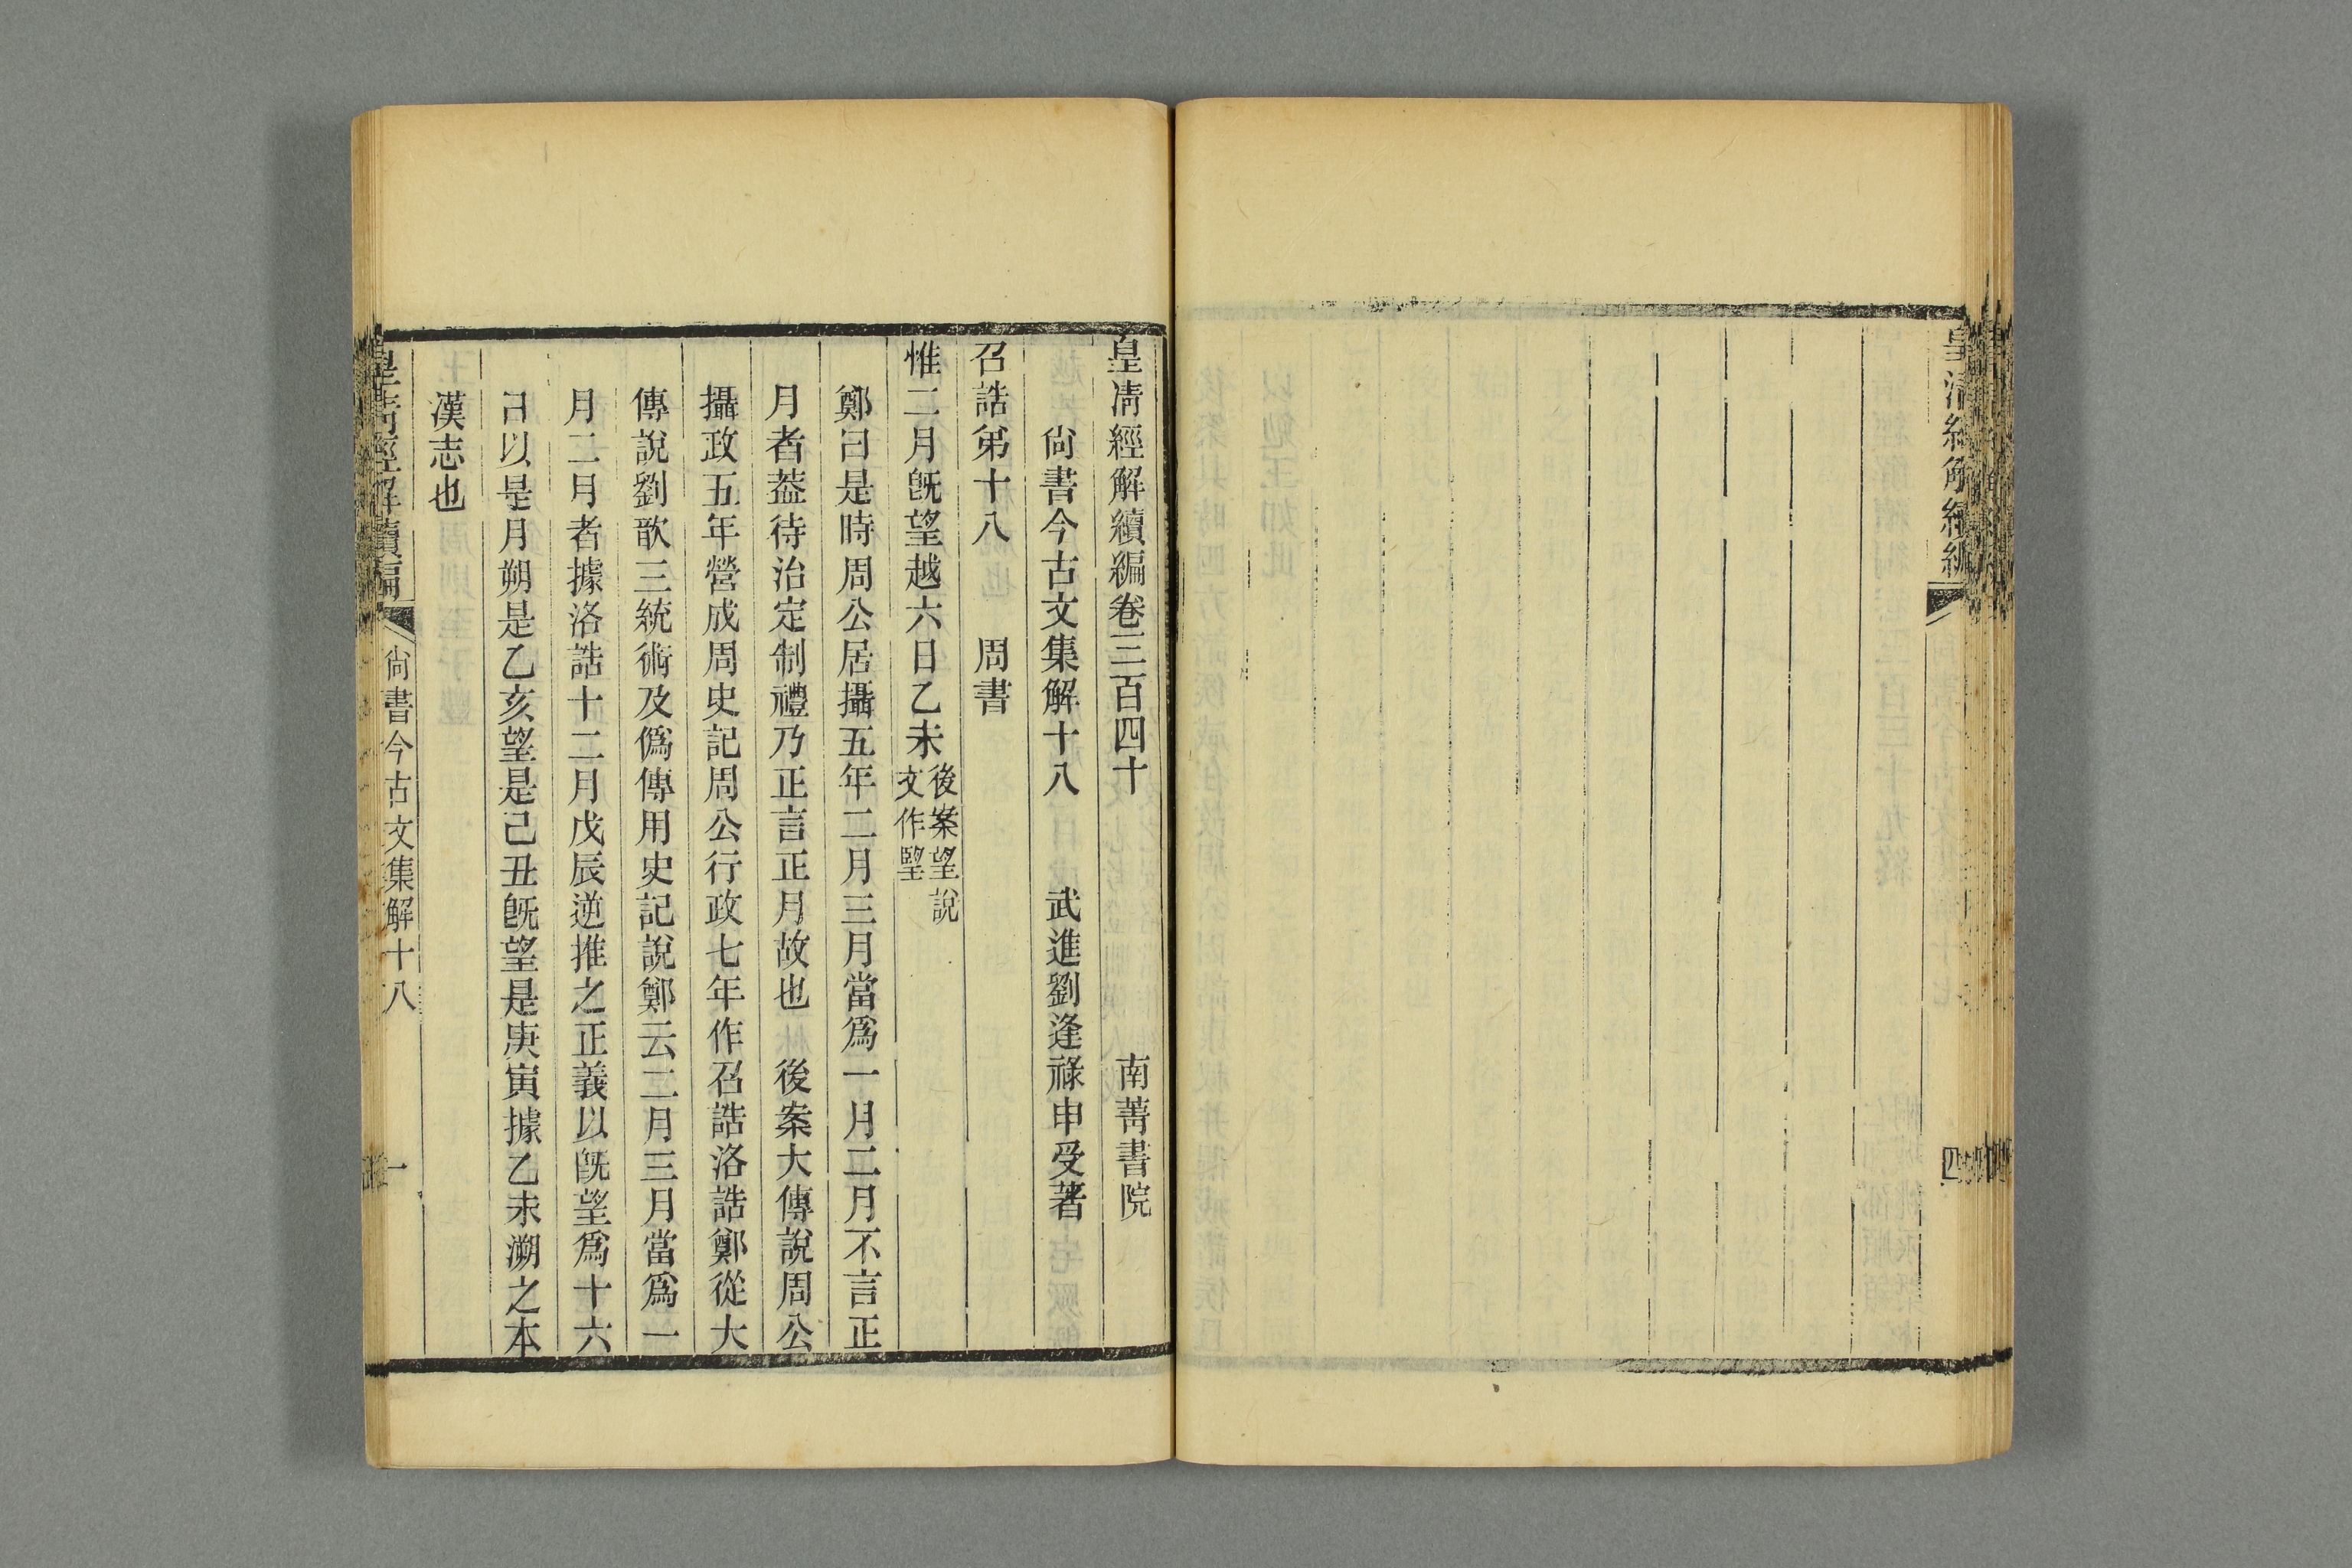 皇清經解續編
四
皇清經解續編卷三百四十
南菁書院
尙書今古文集解十八
武進劉逢祿申受著
召誥弟十八
周書
惟二月旣望越六日乙未
後案望說
文作朢
鄭曰是時周公居攝五年二月三月當爲一月二月不言正
月者葢待治定制禮乃正言正月故也　後案大傳說周公
攝政五年營成周史記周公行政七年作召誥洛誥鄭從大
傳說劉歆三統術及僞傳用史記說鄭云二月三月當爲一
月二月者據洛誥十二月戊辰逆推之正義以旣望爲十六
日以是月朔是乙亥望是己丑旣望是庚寅據乙未溯之本
漢志也
皇清經解續編
尙書今古文集解十八
一